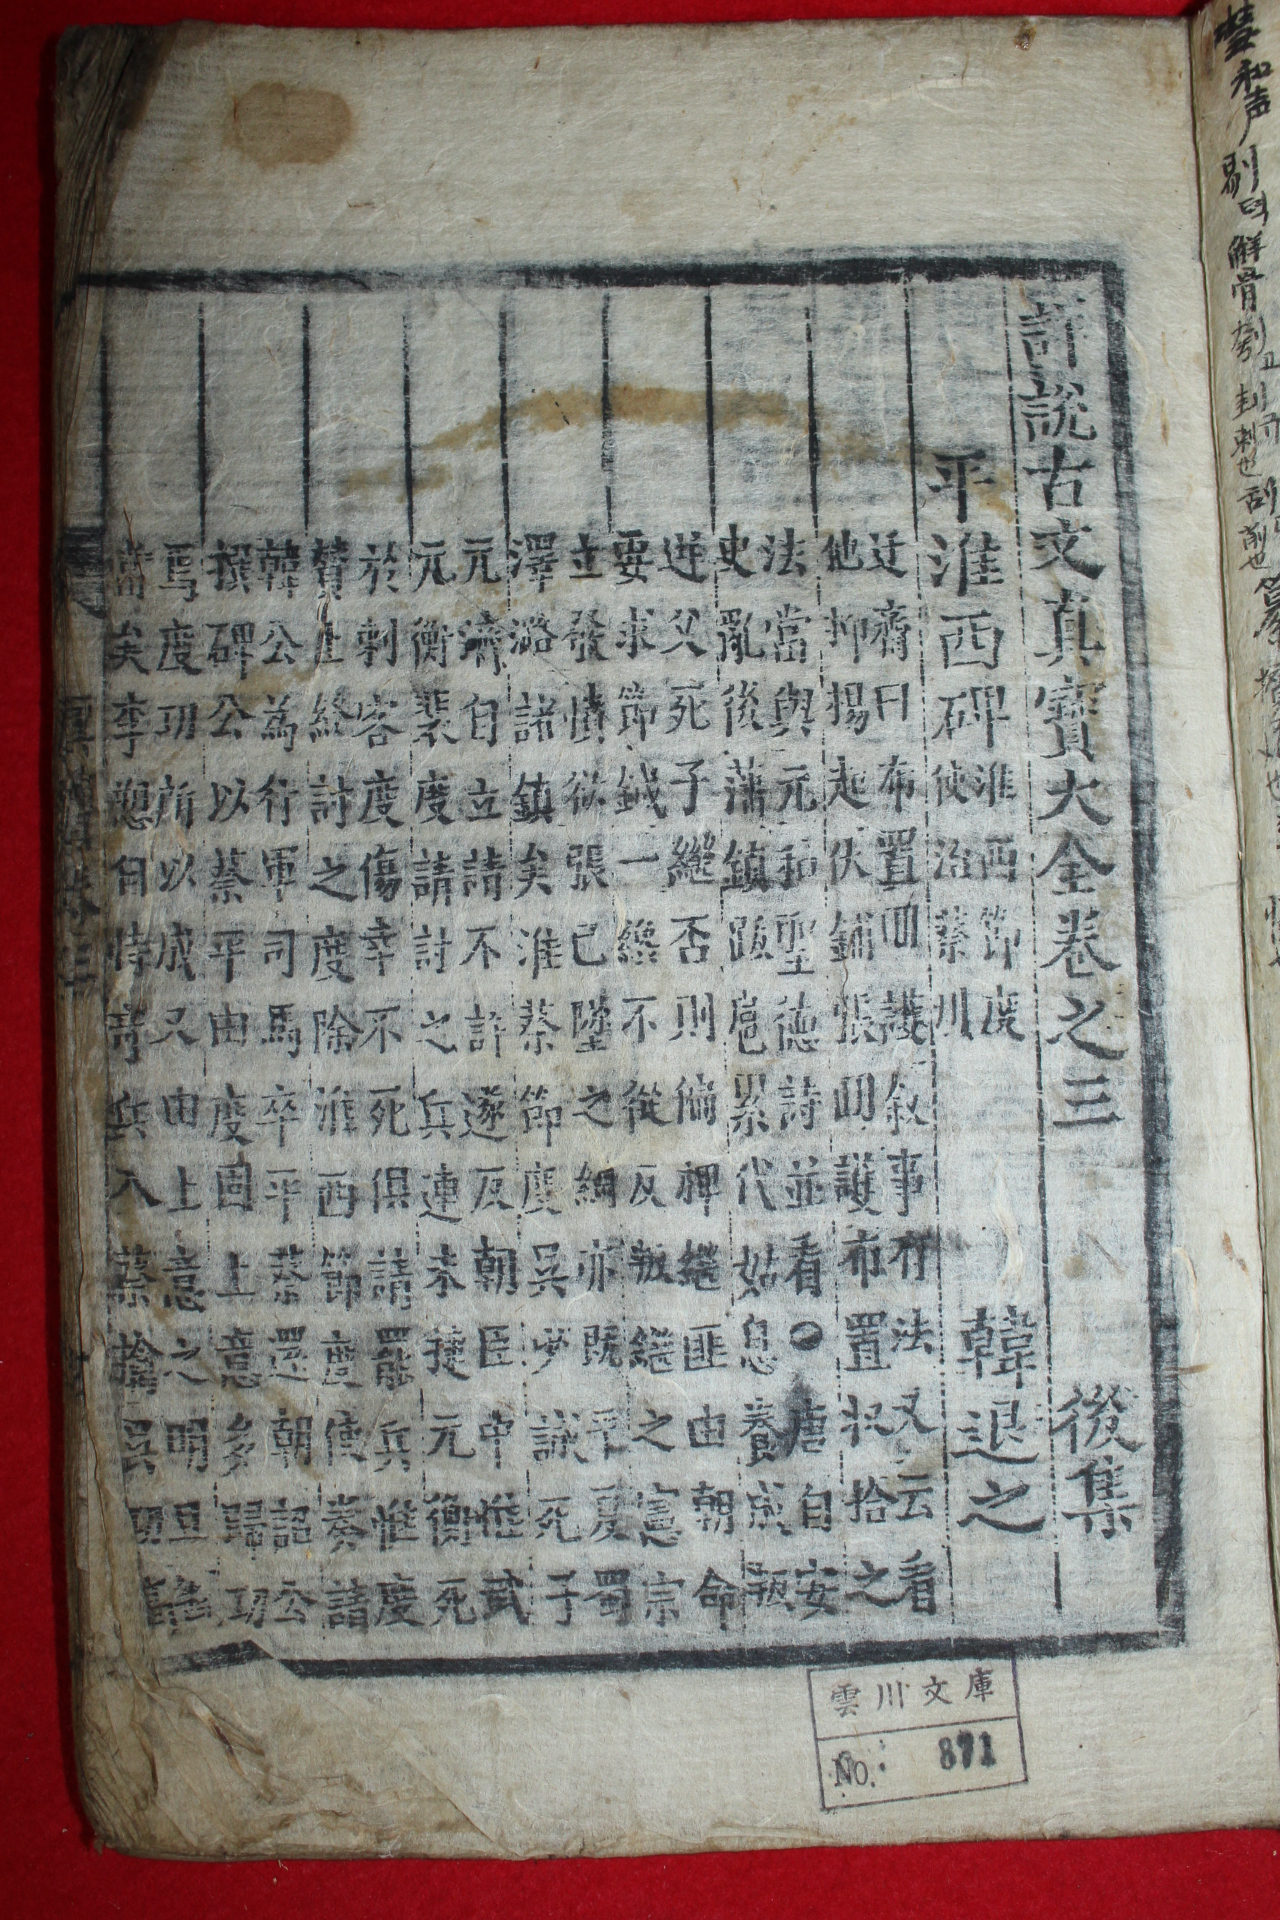 詳說古文真寶大全卷之三 後集
平淮西碑 淮西節度使治蔡州 韓退之
迂齋曰布置回護叙事有法又云看
他抑揚起伏鋪張回護布置收拾之
法當與元和聖德詩並看●唐自安
史亂後藩鎮跋扈累代姑息養成頑
逆父死子繼否則偏裨繼匪由朝命
要求節鉞一不從反叛繼之憲宗
立發憤欲張已墜之綱亦既平夏蜀
澤潞諸鎮矣淮蔡節度吳少誠死子
元濟自立請不許遂反朝臣中惟武
元衡裴度請討之兵連未捷元衡死
於刺客度傷幸不死俱請罷兵惟度
賛上終討之度除淮西節度使奏請
韓公為行軍司馬卒平蔡還朝詔公
撰碑公以蔡平由度固上意多歸功
焉度功所以成又由上意之明且
矣李愬自特奇兵入蔡擒吳
雲川文庫
No. 871